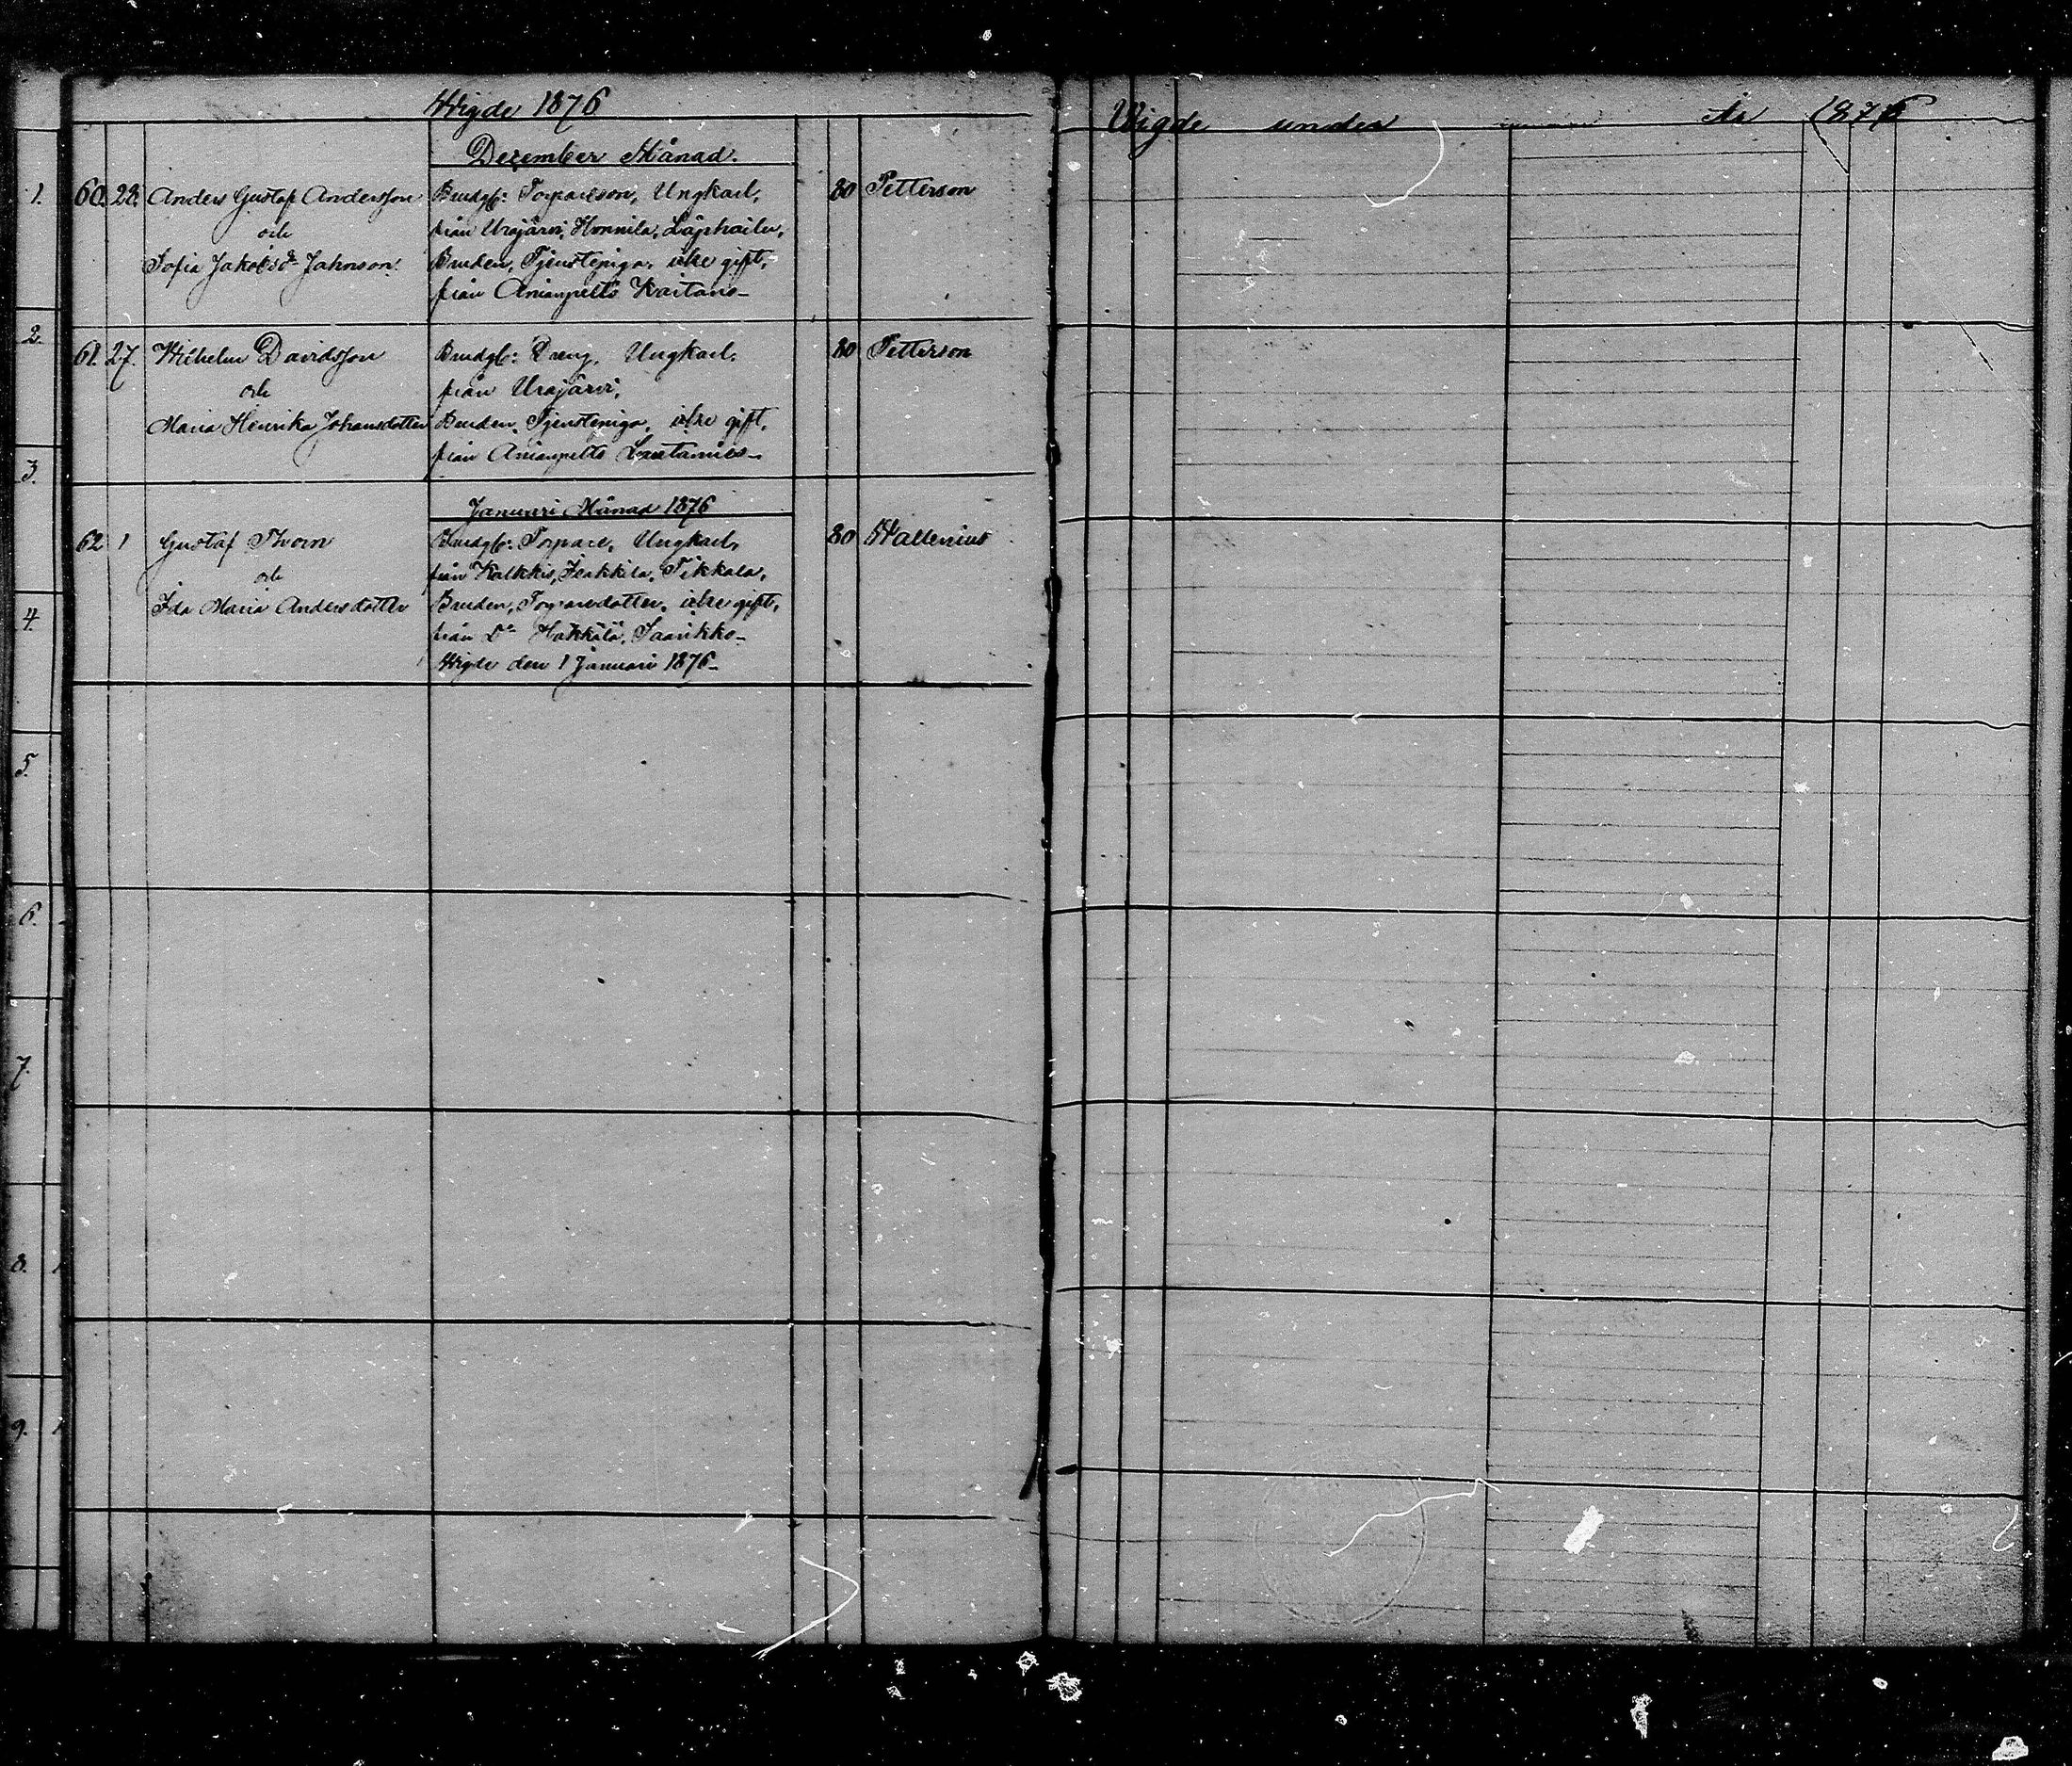 Wigde 1876
Dezember Månad.
60. 28. Anders Gustaf Andersson Brudg: Torpareson, Ungkarl, 80 Petterson
och från Urajärvi, Honnila,
Sofia Jakobsdr Jahnson. Bruden, Tjenstepiga, icke gift,
från Anianpelto Kaitano-
61. 27. Wilhelm Davidsson Brudg: Dreng, Ungkarl, 80 Petterson
och från Urajärvi,
Maria Henrika Johansdotter Bruden, Tjenstepiga, icke gift,
från Anianpelto Lautamies-
Januari Månad 1876
62 1 Gustaf Thorn Brudg: Torpare, Ungkarl, 80 Wallenius
och från Kalkkis, Tikkala,
Ida Maria Andersdotter Bruden, Torparedotter, icke gift,
från Do Hakkila, Saarikko-
Wigde den 1 Januari 1876-
1.
2.
3.
4.
5.
6.
7.
8.
9.
Wigde under År 1876